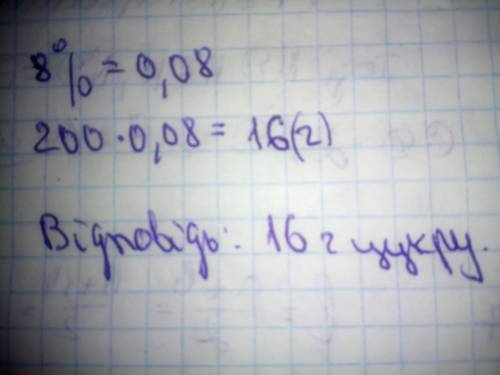 8% = 0,08
200 · 0,08 = 16(г)
Відповідь: 16 г цукру.